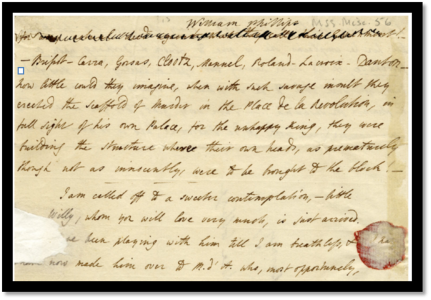 William Phillips
MSS Misc. 56
– Busset – Carra, Gorsas, Clootz, Manuel, Roland – Lacroix – Danton –
how little could they imagine, when with such savage insult they
erected the scaffold of Murder in the Place de la Revolution, in
full sight of his own Palace, for the unhappy King, they were
building the structure where their own heads, as prematurely
though not as innocently, were to be brought to the block! –
I am called off to a sweeter contemplation, – little
Willy, whom you will love very much, is just arrived.
been playing with him till I am breathless, &
now made him over to M. d'A. who, most opportunely,